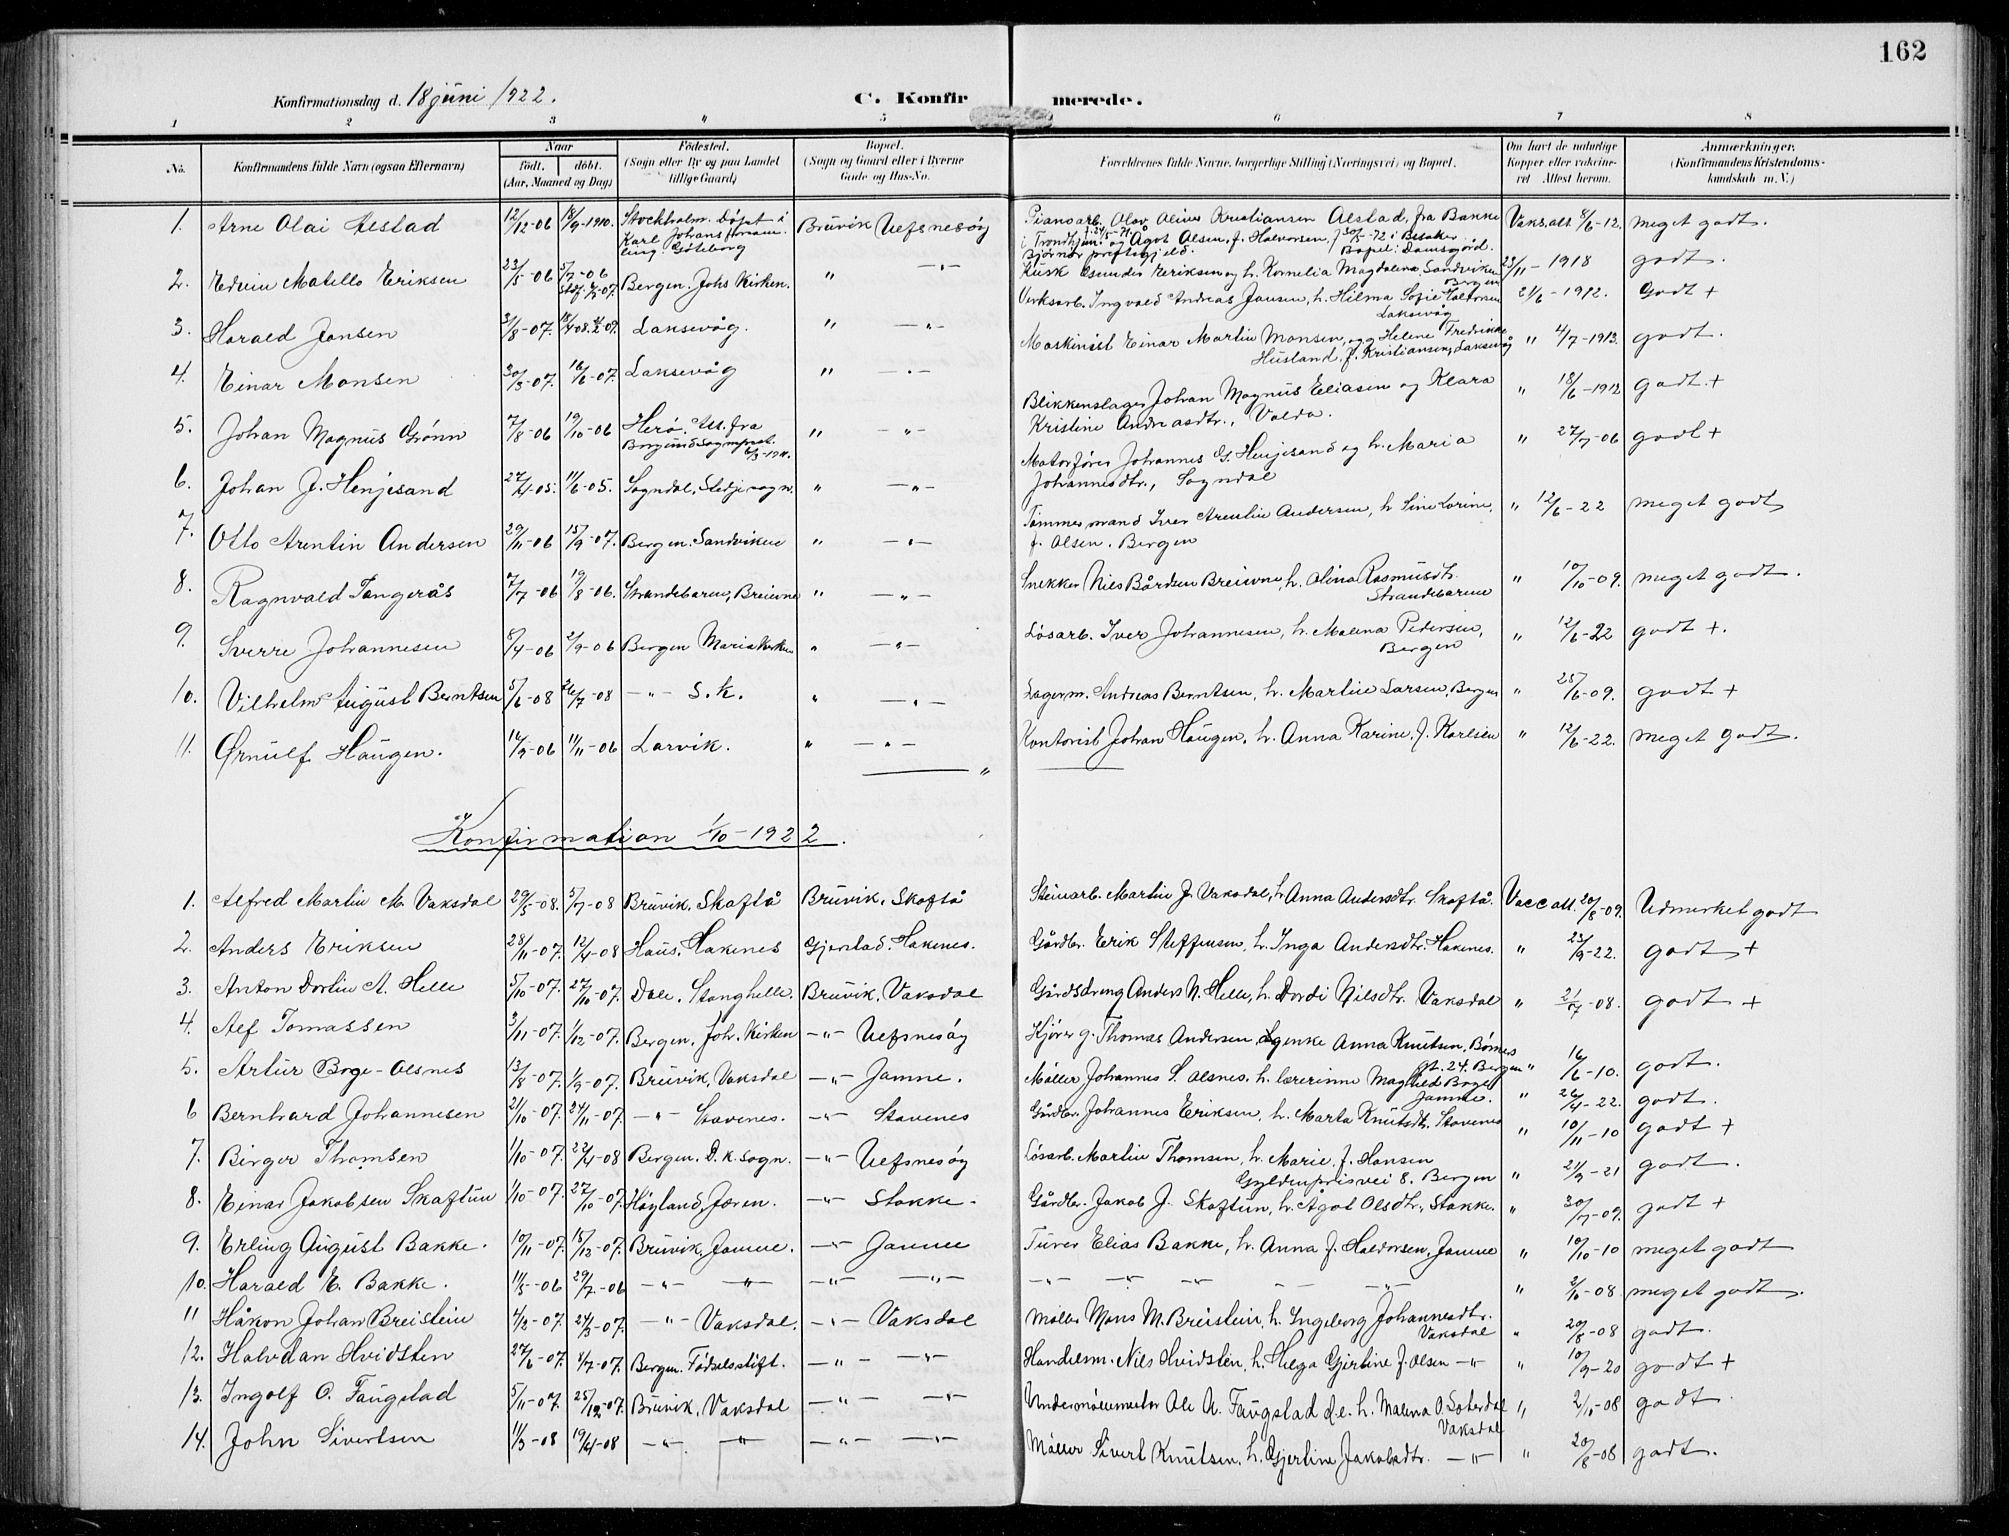 162
Konfirmationsdag d. 18 juni 1922.
C. Konfirmerede.
1 2 3 4 5 6 7 8
No. Konfirmandens fulde Navn (ogsaa Efternavn) Naar født. døbt. (Aar, Maaned og Dag) Fødested. (Sogn eller By og paa Landet tillige Gaard) Bopæl. (Sogn og Gaard eller i Byerne Gade og Hus-No. Forældrenes fulde Navne, borgerlige Stilling (Næringsvei) og Bopæl. Om havt de naturlige Kopper eller vakcineret Attest herom. Anmærkninger. (Konfirmandens Kristendomskundskab m. V.)
1. Arne Olai Alstad 12/12-06 18/9-1910. Stockholm. Døpt i Karl Johans Göteborg Bruvik Uefsnesøy Pianoarb. Olav Oliver Kristiansen Alstad, fra Bakke i Trondhjem. og Ågot Olsen, f. Halvorsen, f 30/5-72 i Besaker Bjørnør prestegjeld. Bopel: Damsgård. Vaks.att 8/6-12. meget godt.
2. Edvin Matello Eriksen 23/5-06 5/7-06 Bergen. Johs Kirken. " —"— Kusk Eriksen og h. Kornelia Magdalena Sandviken Bergen 23/11-1918 godt.
3. Harald Jansen 3/8-07. Laksevåg. " —"— Verksarb. Ingvald Andreas Jansen, h. Hilma Sofie Laksevåg 21/6-1912. godt +
4. Einar Monsen 30/3-07. 16/6-07. Laksevåg " —"— Maskinist Einar Martin Monsen, og Helene Fredrikke Husland, f. Kristiansen, Laksevåg " 4/7-1913. godt.
5. Johan Magnus Grønn 7/8-06 19/10-06 Herø. Att. fra Borgund sogneprest. " —"— Blikkenslager Johan Magnus Eliasen og Klara Kristine Andreasdtr., Volda. " 18/6-1912 godt. +
6. Johan J. Henjesand 27/4-05. 11/6-05. Sogndal, Stedje sogn. " —"— Motorfører Johannes G. Henjesand og h. Maria Johannesdtr., Sogndal " 27/7-06 godt +
7. Otto Arentin Andersen 29/11-06 15/9-07. Bergen. Sandviken " —"— Tømmermand Iver Arentin Andersen, h Sine Lorine, f. Olsen. Bergen " 12/6-22 meget godt
8. Ragnvald Tangerås 7/7-06 19/8-06. Strandebarm, Breievne " —"— Snekker Nils Bårdsen Breievne, h. Olina Rasmusdtr. Strandebarm " 10/10-09. meget godt.
9. Sverre Johannesen 8/4-06 2/9-06 Bergen Mariakirken " —"— Løsarb. Iver Johannesen, h. Malena Pedersen, Bergen " 12/6-22 godt +.
10. Vilhelm August Berntsen 5/6-08 26/7-08 —"— S.k. " —"— Lagerm. Andreas Berntsen, h. Martine Larsen, Bergen " 25/6-09. godt +
11. Ørnulf Haugen. 16/9-06 11/11-06 Larvik. " —"— Kontorist Johan Haugen, h. Anna Karine, f. Karlsen " 12/6-22. meget godt.
Konfirmation 1/10-1922.
1. Alfred Martin M. Vaksdal 29/5-08. 5/7-08 Bruvik, Skaftå Bruvik, Skaftå Steinarb. Martin J. Vaksdal, h Anna Andersdtr. Skaftå. Vacc att. 20/8-09. Udmerket godt
2. Anders Eriksen 28/11-07. 12/4-08 Haus, Hakenes Gjerstad, Hakenes. Gårdbr. Erik Steffensen, h. Inga Andersdtr. Hakenes. " 23/9-22. godt +
3. Anton Dortin A. Helle 5/10-07. 27/10-07. Dale, Stanghelle. Bruvik, Vaksdal Gårdsdreng Anders N. Helle, h. Dordi Nilsdtr. Vaksdal " 2/7-08. godt +
4. Alf Tomassen 3/11-07. 1/12-07. Bergen, Joh. Kirken —"— Uefsnesøy Kjører g. Thomas Andersen, enke Anna Knutsen, gt. 24. Bergen " 16/6-10. godt.
5. Artur Boge-Olsnes 13/8-07. 1/9-07. Bruvik, Vaksdal —"— Jamne. Møller Johannes S. Olsnes. h. lærerinne Maghild Boge, Jamne. " 26/4-22. godt.
6 Bernhard Johannesen 21/10-07. 24/11-07. —"— Stavenes. —"— Stavenes Gårdbr. Johannes Eriksen, h. Marta Knutsdtr. Stavenes " 10/11-10 godt +
7. Birger Thomsen 1/10-07. 22/4-08 Bergen. D.k. sogn. —"— Uefsnesøy Løsarb. Martin Thomsen, h. Marie, f. Hansen Gyldenprisvei 8. Bergen " 21/9-21 godt.
8. Einar Jakobsen Skaftun 1/10-07. 27/10-07. Høyland, Jæren. —"— Stokke. Gårdbr. Jakob J. Skaftun, h. Ågot Olsdtr., Stokke. " 30/7-09. godt +
9. Erling August Bakke. 10/11-07. 15/12-07. Bruvik, Jamne. —"— Jamne Turer Elias Bakke, h. Anna f. Haldorsen, Jamne " 10/10-10 meget godt
10. Harald E. Bakke. 11/5-06 29/7-06 —"— —"— —"— —"— —"— —"— —"— —"— " 2/10-08 meget godt.
11 Håkon Johan Breistein 4/2-07. 24/3-07. —"— Vaksdal. —"— Vaksdal Møller Mons M. Breistein, h. Ingeborg Johannesdtr. Vaksdal " 20/8-08 godt.
12. Halvdan Hvidsten 27/6-07. 8/7-07. Bergen. Fødselsstift. —"— —"— Handelsm. Nils Hvidsten, h. Helga Gjertine f. Olsen —"— " 10/9-20 godt +
13. Ingolf O. Faugstad 5/11-07. 25/12-07. Bruvik, Vaksdal —"— —"— Undermøllemester Ole A. Faugstad h. Malena O. Vaksdal " 2/10-08 godt
14. John Sivertsen 11/3-08 19/4-08 —"— —"— —"— —"— Møller Sivert Knutsen, h. Gjertine Jakobsdtr. —"— " 20/8-08 godt.